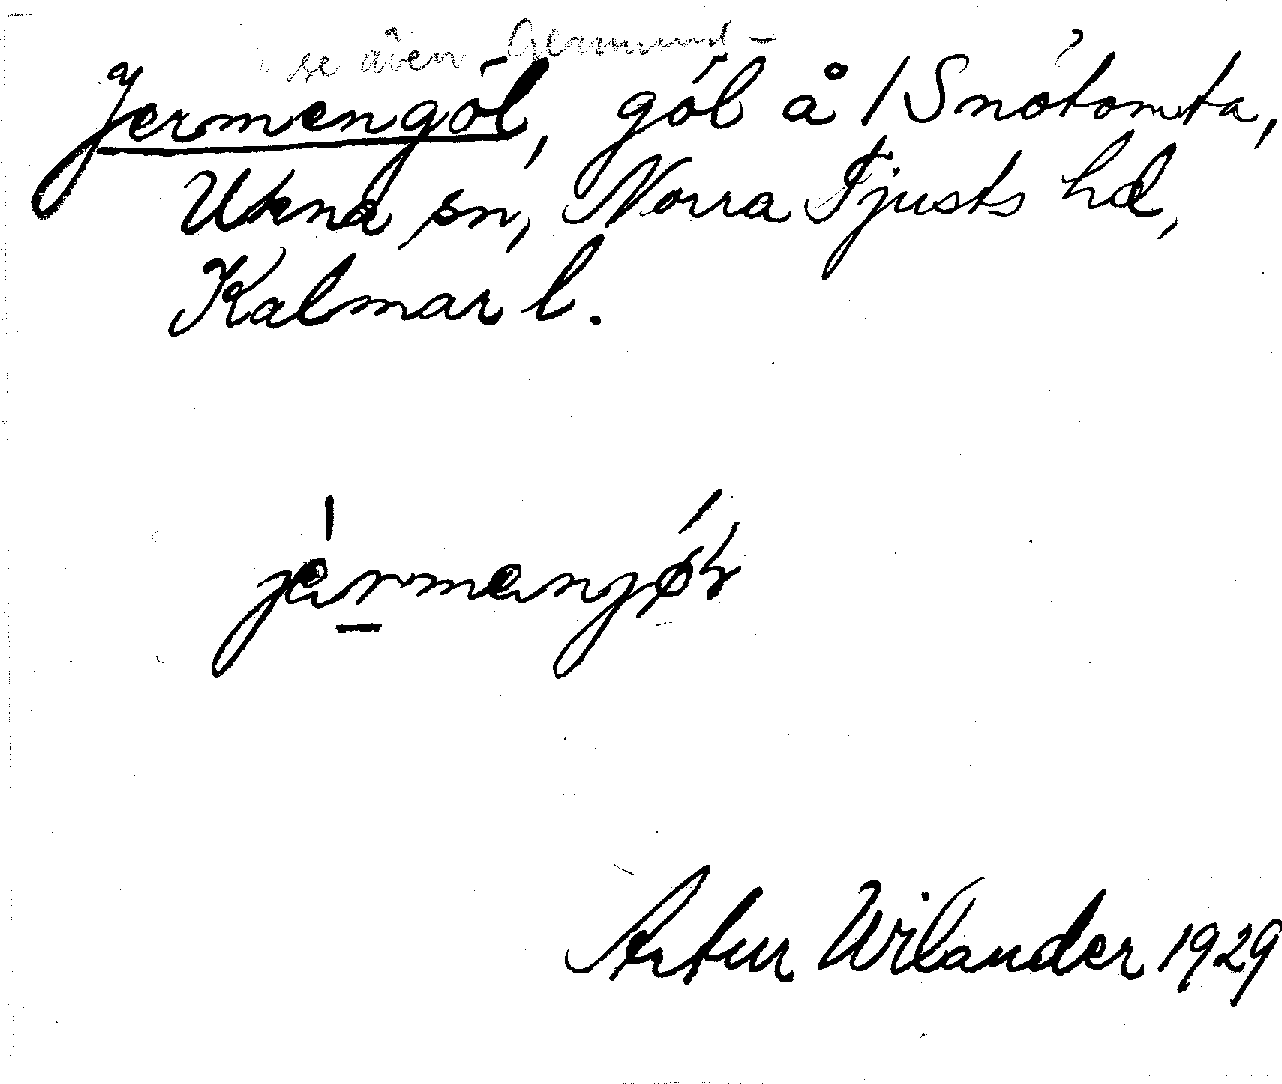 se även Germund-
Jermengöl, göl å 1 Snötomta,
Ukna sn, Norra Tjusts hd,
Kalmar l.
Artur Wilander 1929